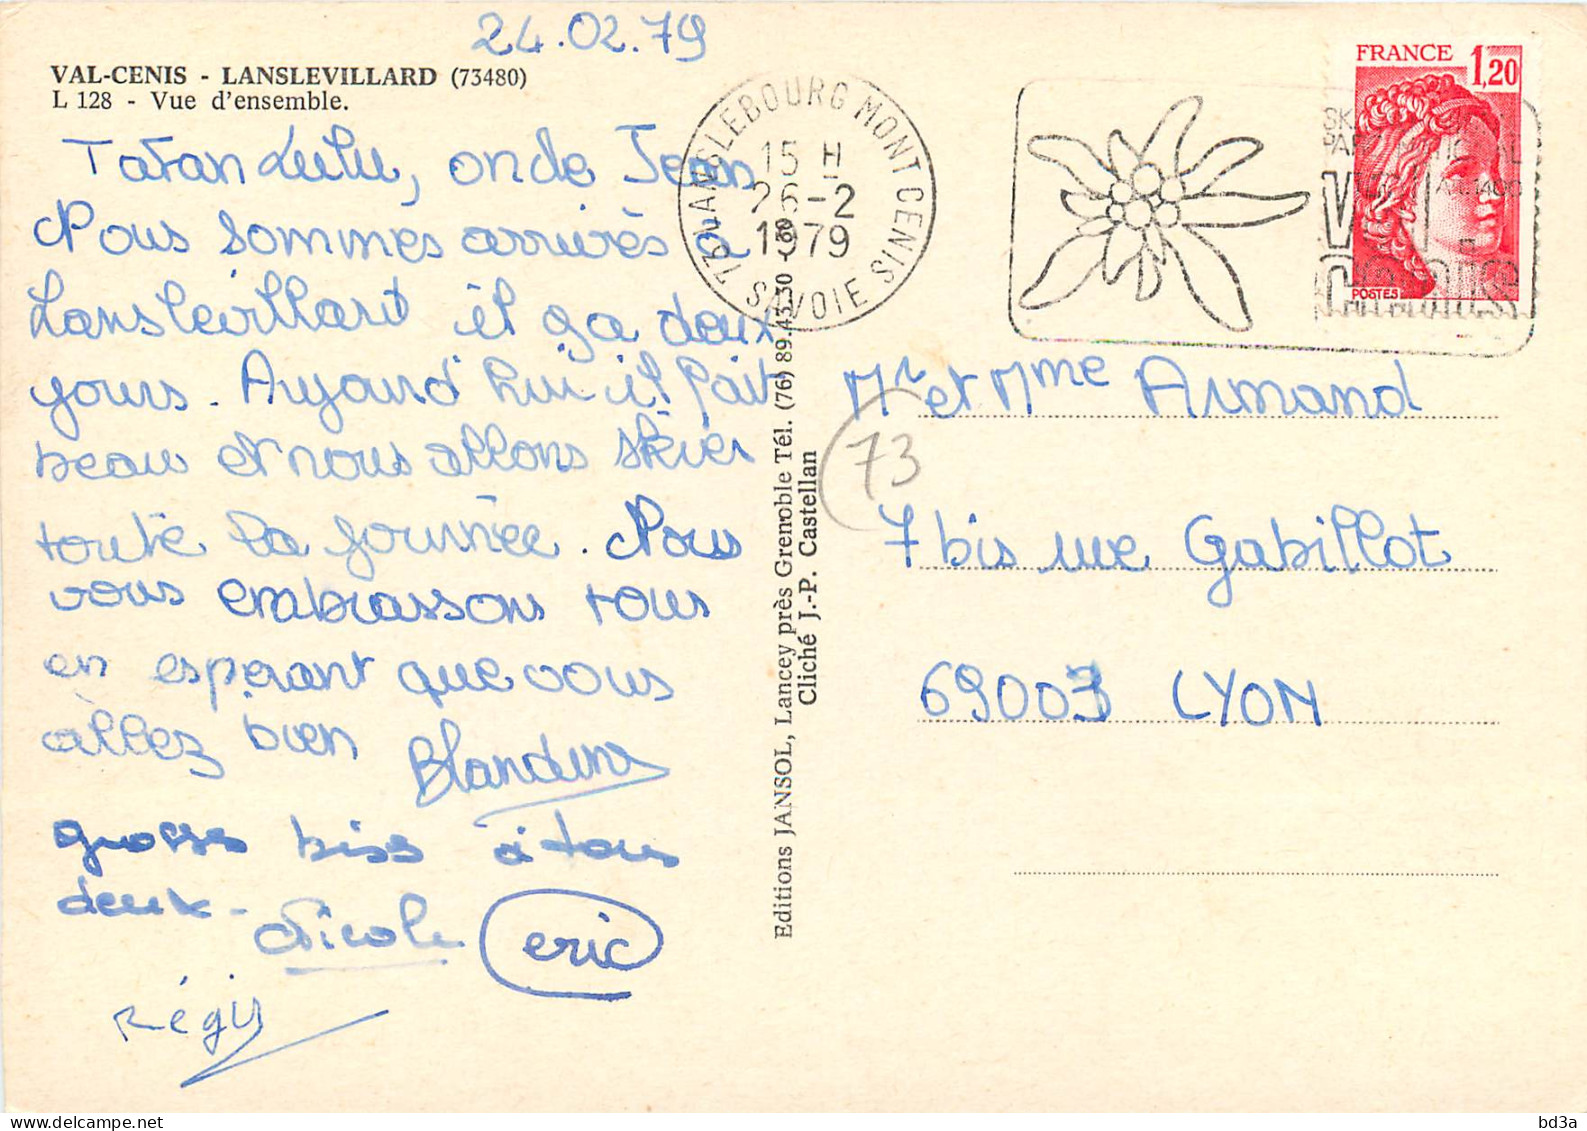 24.02.79
VAL-CENIS - LANSLEVILLARD (73480)
L 128 - Vue d'ensemble.
Tatan Lulu, oncle Jean
Nous sommes arrivés à
Lanslevillard il y a deux
jours. Aujourd'hui il fait
beau et nous allons skier
toute la journée. Nous
vous embrassons tous
en esperant que vous
allez bien
Blandine
grosse biss à tous
deux -
Nicole
eric
Régis
Editions JANSOL, Lancey près Grenoble Tél. (76) 89.43.30
Cliché J.-P. Castellan
73 LANSLEBOURG MONT CENIS
15 H
26-2
1979
SAVOIE
FRANCE 1,20
POSTES
73
Mr et Mme Armand
7 bis rue Gabillot
69003 LYON
bd3a